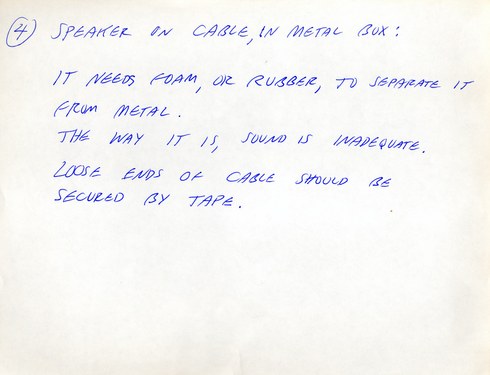 4 SPEAKER ON CABLE, IN METAL BOX:
IT NEEDS FOAM, OR RUBBER, TO SEPARATE IT
FROM METAL.
THE WAY IT IS, SOUND IS INADEQUATE.
LOOSE ENDS OF CABLE SHOULD BE
SECURED BY TAPE.